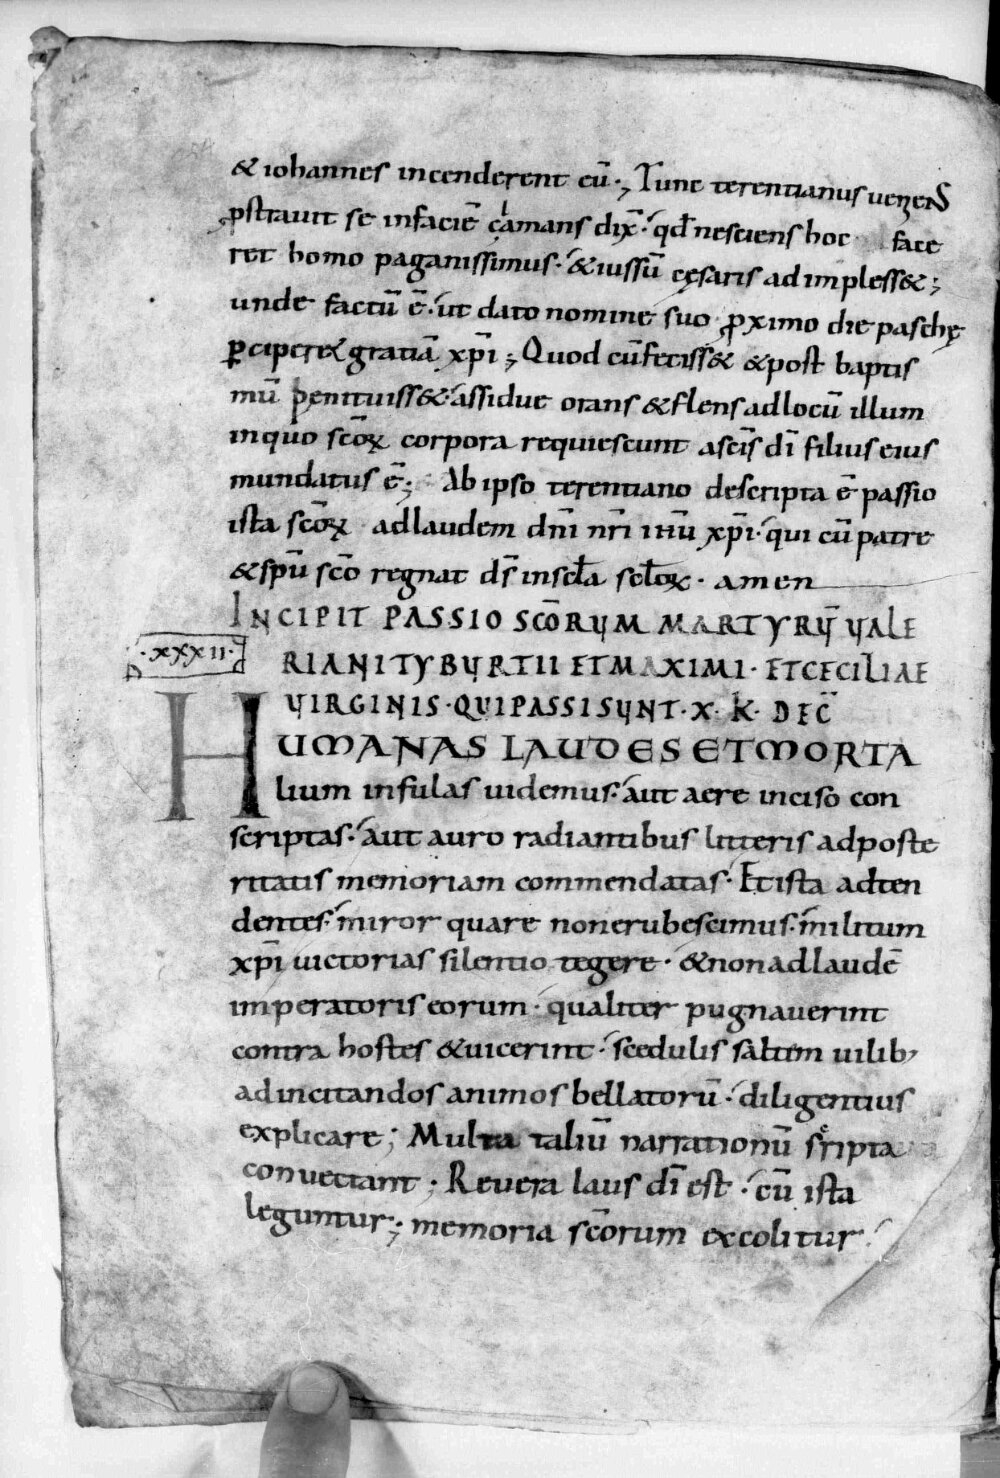 & iohannes incenderent eū·; Tunc terentianus ueniens
ꝓstrauit se infaciē clamans dix̄· qđ nesciens hoc face
ret homo paganissimus· & iussū cęsaris adimpless&;
unde factū ē· ut dato nomine suo ꝓximo die paschę
ꝑcipere& gratiā xp̄i; Quod cū feciss& & post baptis
mū penituiss&· assidue orans & flens ad locū illum
inquo sc̄oꝝ corpora requiescunt a sc̄is dī filius eius
mundatus ē; Ab ipso terentiano descripta ē passio
ista sc̄oꝝ ad laudem dn̄i nr̄i ihū xp̄i· qui cū patre
& spū sc̄o regnat ds̄ in scła scłoꝝ· amen
INCIPIT PASSIO SCŌRUM MARTYRŪ VALE
·XXXII·
RIANI TYBURTII ET MAXIMI· ET CECILIAE
VIRGINIS· QUI PASSI SUNT· X· K· DEC̄
HUMANAS LAUDES ET MORTA
lium infulas uidemus· aut aere inciso con
scriptas· aut auro radiantibus litteris ad poste
ritatis memoriam commendatas· Et ista adten
dentes· miror quare non erubescimus· militum
xp̄i uictorias silentio tegere· & non ad laudē
imperatoris eorum· qualiter pugnauerint
contra hostes & uicerint· scedulis saltem uilib;
ad incitandos animos bellatorū· diligentius
explicare; Multa taliū narrationū scripta
conuectant; Reuera laus dī est· cū ista
leguntur; memoria sc̄orum excolitur·